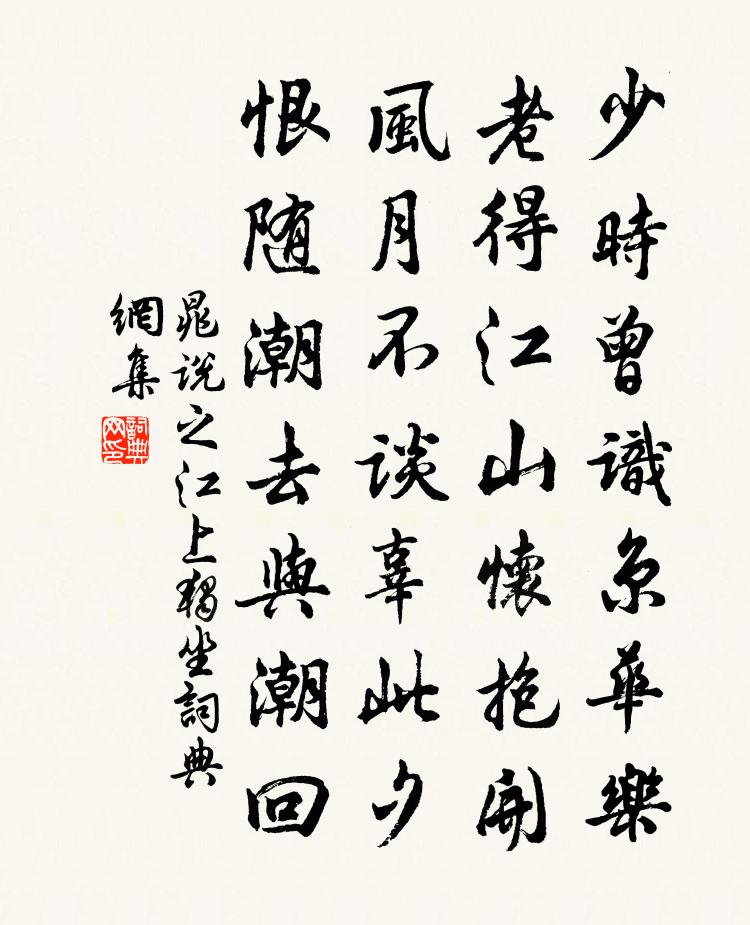 少時曾識京華樂
老得江山懷抱開
風月不談辜此夕
恨随潮去與潮回
晁说之江上獨坐詞典
網集
詞典網印